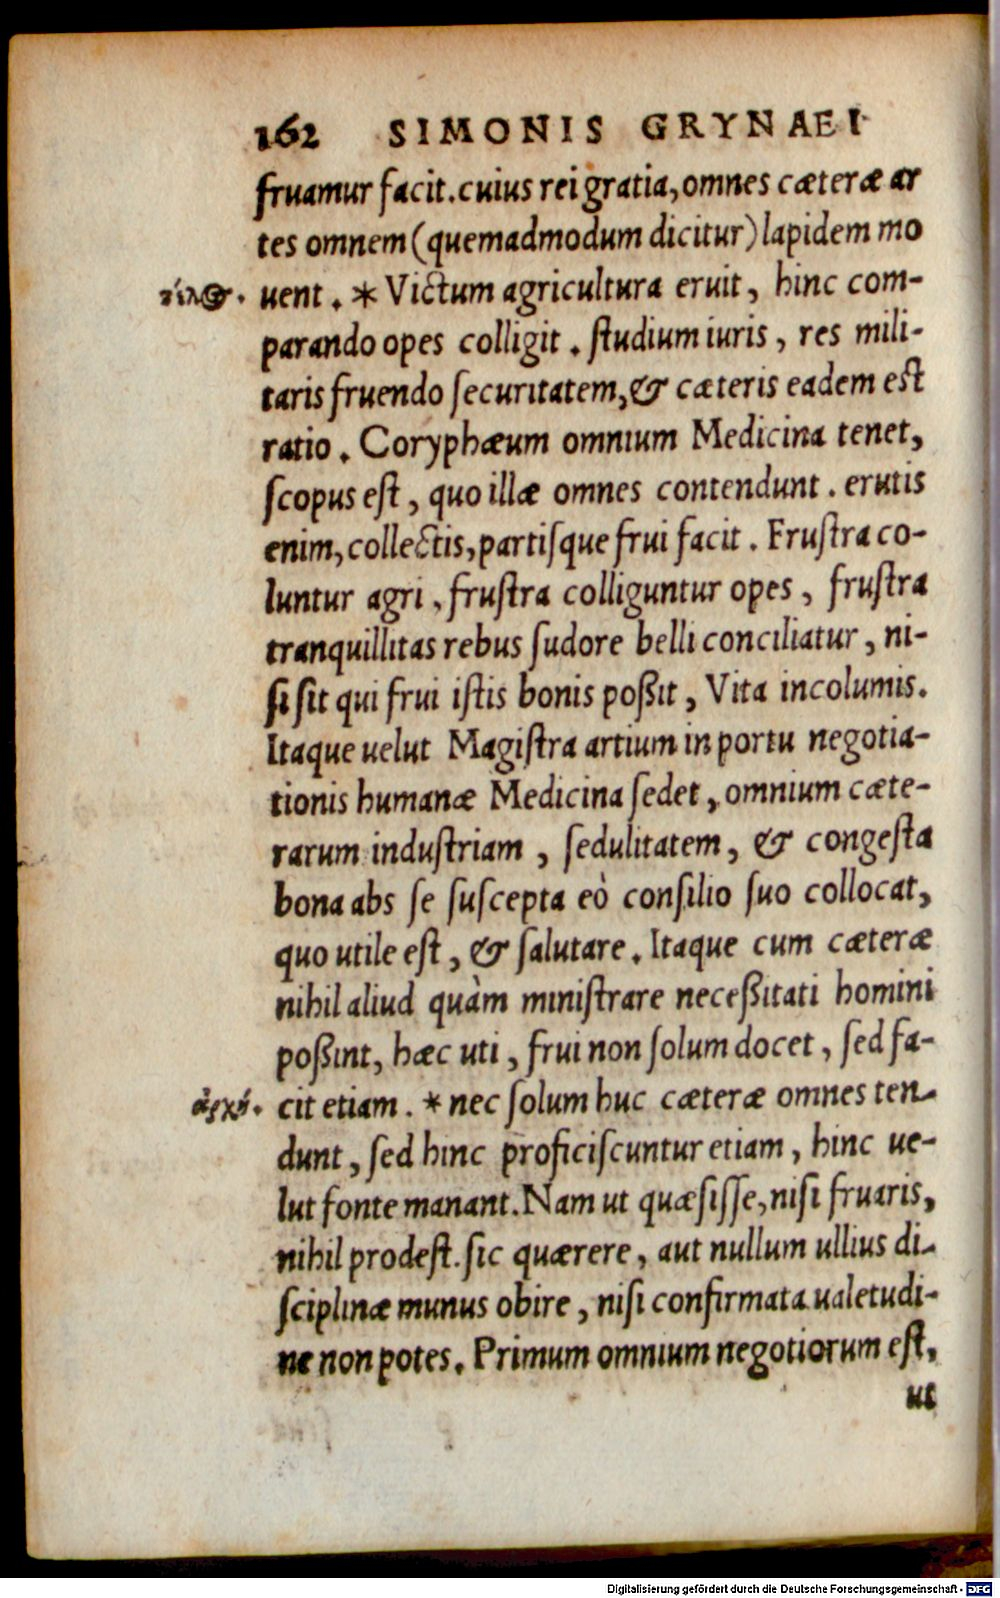 162 SIMONIS GRYNAEI
fruamur facit. cuius rei gratia, omnes cæteræ ar
tes omnem (quemadmodum dicitur) lapidem mo
τίλος. uent. * Victum agricultura eruit, hinc com-
parando opes colligit. ſtudium iuris, res mili-
taris fruendo ſecuritatem, & cæteris eadem eſt
ratio. Coryphæum omnium Medicina tenet,
ſcopus eſt, quo illæ omnes contendunt. erutis
enim, collectis, partiſque frui facit. Fruſtra co-
luntur agri, fruſtra colliguntur opes, fruſtra
tranquillitas rebus ſudore belli conciliatur, ni-
ſi ſit qui frui iſtis bonis poßit, Vita incolumis.
Itaque uelut Magiſtra artium in portu negotia-
tionis humanæ Medicina ſedet, omnium cæte-
rarum induſtriam, ſedulitatem, & congeſta
bona abs ſe ſuſcepta eò conſilio ſuo collocat,
quo utile eſt, & ſalutare. Itaque cum cæteræ
nihil aliud quàm miniſtrare neceßitati homini
poßint, hæc uti, frui non ſolum docet, ſed fa-
ἀρχή. cit etiam. * nec ſolum huc cæteræ omnes ten-
dunt, ſed hinc proficiſcuntur etiam, hinc ue-
lut fonte manant. Nam ut quæſiſſe, niſi fruaris,
nihil prodeſt. ſic quærere, aut nullum ullius di-
ſciplinæ munus obire, niſi confirmata ualetudi-
ne non potes. Primum omnium negotiorum eſt,
ut
Digitalisierung gefördert durch die Deutsche Forschungsgemeinschaft - DFG